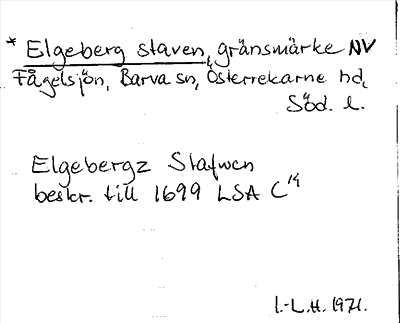 * Elgeberg staven, gränsmärke NV
Fågelsjön, Barva sn, Österrekarne hd,
Söd. l.
Elgebergz Stafwen
beskr. till 1699 LSA C 14
I.-L.H. 1971.